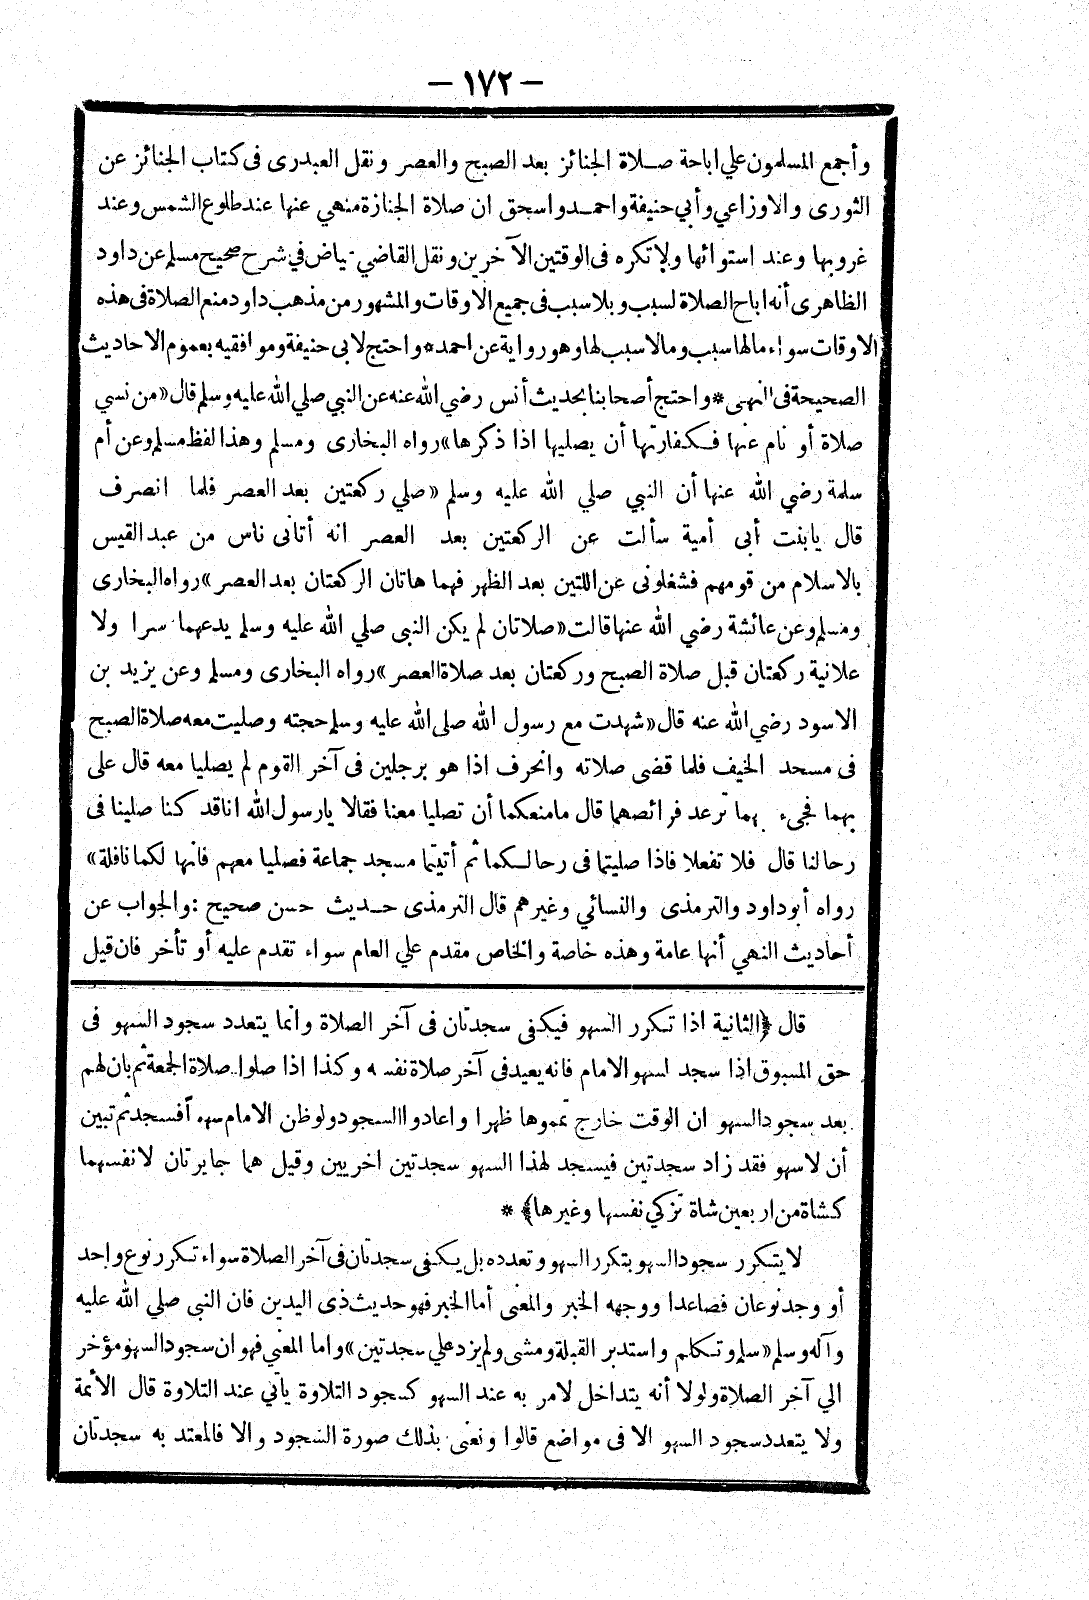 — ١٧٢ —
وأجمع المسلمون علي اباحة صلاة الجنائز بعد الصبح والعصر ونقل العبدرى فى كتاب الجنائز عن
الثورى والاوزاعي وأبي حنيفة واحمد واسحق ان صلاة الجنازة منهي عنها عند طلوع الشمس وعند
غروبها وعند استوائها ولا تكره فى الوقتين الآخرين ونقل القاضي عياض في شرح صحيح مسلم عن داود
الظاهرى أنه اباح الصلاة لسبب وبلا سبب فى جميع الاوقات والمشهور من مذهب داود منع الصلاة فى هذه
الاوقات سواء مالها سبب ومالا سبب لها وهو رواية عن احمد * واحتج لابى حنيفة وموافقيه بعموم الاحاديث
الصحيحة فى النهى * واحتج أصحابنا بحديث أنس رضي الله عنه عن النبي صلي الله عليه وسلم قال «من نسي
صلاة أو نام عنها فكفارتها أن يصليها اذا ذكرها» رواه البخارى ومسلم وهذا لفظ مسلم وعن أم
سلمة رضي الله عنها أن النبي صلي الله عليه وسلم «صلي ركعتين بعد العصر فلما انصرف
قال يابنت أبى أمية سألت عن الركعتين بعد العصر انه أتانى ناس من عبد القيس
بالاسلام من قومهم فشغلونى عن اللتين بعد الظهر فهما هاتان الركعتان بعد العصر» رواه البخارى
ومسلم وعن عائشة رضي الله عنها قالت «صلاتان لم يكن النبى صلي الله عليه وسلم يدعهما سرا ولا
علانية ركعتان قبل صلاة الصبح وركعتان بعد صلاة العصر» رواه البخارى ومسلم وعن يزيد بن
الاسود رضي الله عنه قال «شهدت مع رسول الله صلى الله عليه وسلم حجته وصليت معه صلاة الصبح
فى مسجد الخيف فلما قضى صلاته وانحرف اذا هو برجلين فى آخر القوم لم يصليا معه قال على
بهما فجىء بهما ترعد فرائصهما قال مامنعكما أن تصليا معنا فقالا يارسول الله انا قد كنا صلينا فى
رحالنا قال فلا تفعلا فاذا صليتما فى رحالكما ثم أتيتما مسجد جماعة فصليا معهم فانها لكما نافلة»
رواه أبوداود والترمذى والنسائي وغيرهم قال الترمذى حديث حسن صحيح : والجواب عن
أحاديث النهي أنها عامة وهذه خاصة والخاص مقدم علي العام سواء تقدم عليه أو تأخر فان قيل
قال ﴿الثانية اذا تكرر السهو فيكفى سجدتان فى آخر الصلاة وانما يتعدد سجود السهو فى
حق المسبوق اذا سجد لسهو الامام فانه يعيد فى آخر صلاة نفسه وكذا اذا صلوا صلاة الجمعة ثم بان لهم
بعد سجود السهو ان الوقت خارج تمموها ظهرا واعادوا السجود ولو ظن الامام سهوا فسجد ثم تبين
أن لا سهو فقد زاد سجدتين فيسجد لهذا السهو سجدتين اخريين وقيل هما جابرتان لانفسهما
كشاة من اربعين شاة تزكي نفسها وغيرها﴾ *
لا يتكرر سجود السهو بتكرر السهو وتعدده بل يكفى سجدتان فى آخر الصلاة سواء تكرر نوع واحد
أو وجد نوعان فصاعدا ووجهه الخبر والمعنى أما الخبر فهو حديث ذى اليدين فان النبي صلي الله عليه
وآله وسلم «سلم وتكلم واستدبر القبلة ومشى ولم يزد علي سجدتين» واما المعنى فهو ان سجود السهو مؤخر
الي آخر الصلاة ولولا أنه يتداخل لامر به عند السهو كسجود التلاوة يأتي عند التلاوة قال الأئمة
ولا يتعدد سجود السهو الا فى مواضع قالوا ونعنى بذلك صورة السجود والا فالمعتد به سجدتان